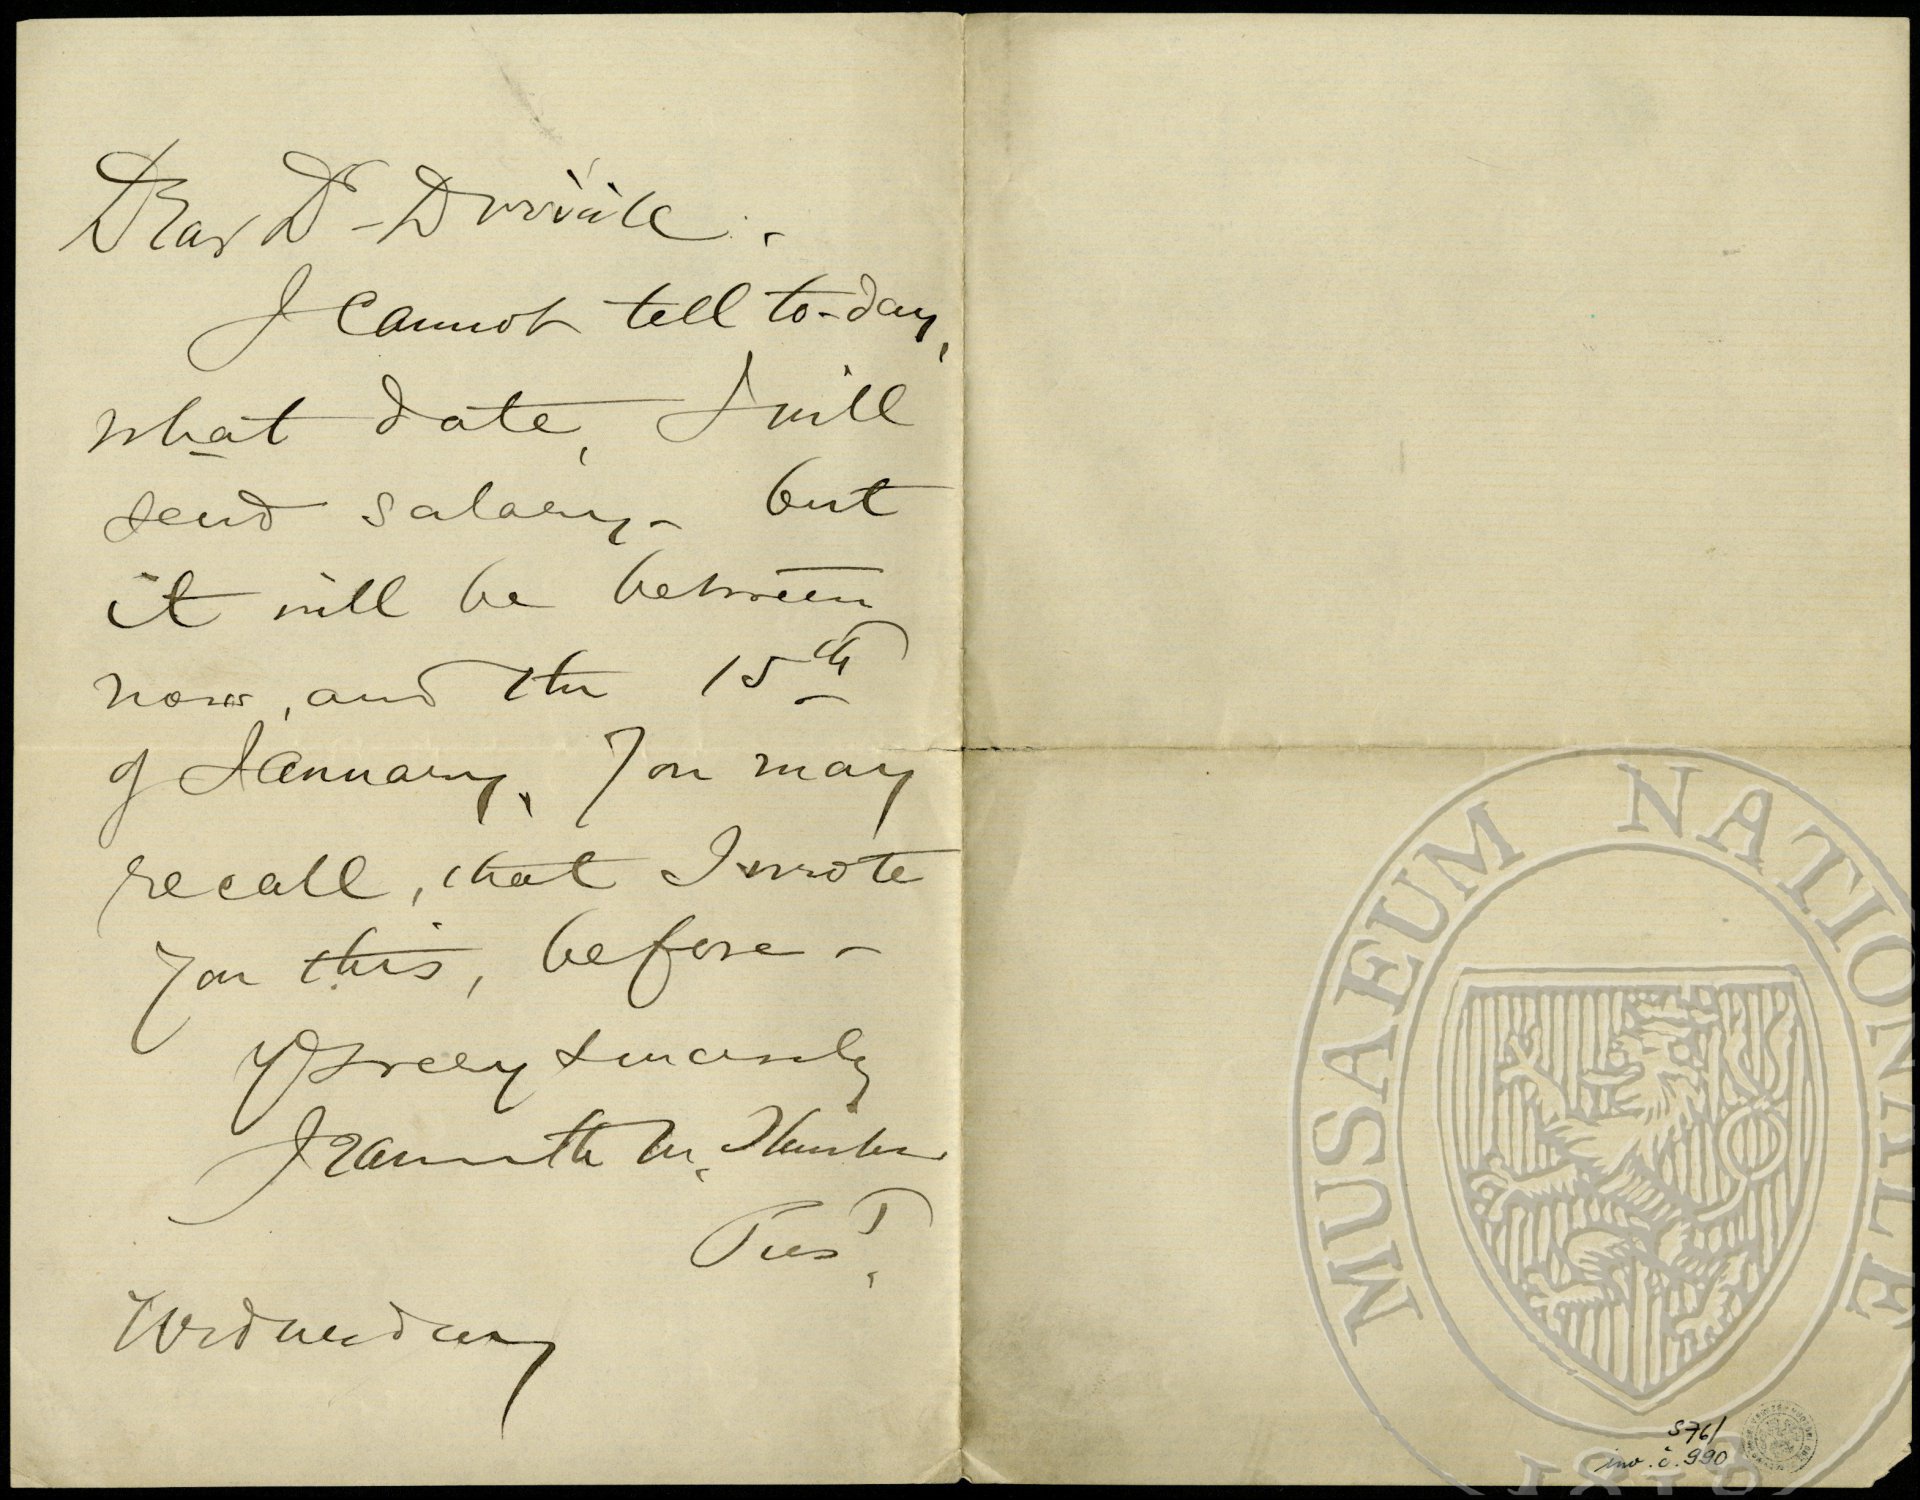 Dear Dr - Dvořák.
I cannot tell to-day,
what date, I will
send salary - but
it will be between
now, and the 15th
of January. You may
recall, that I wrote
you this, before -
Very sincerely
Jeannette M. Thurber
Prest.
Wednesday
MUSAEUM NATIONALE
1818
S76/
inv. č. 990